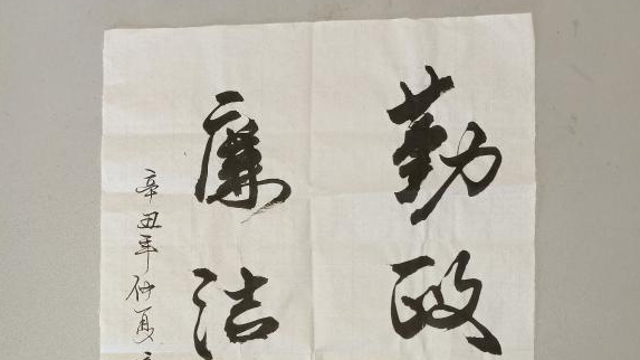 勤政
廉洁
辛丑年仲夏